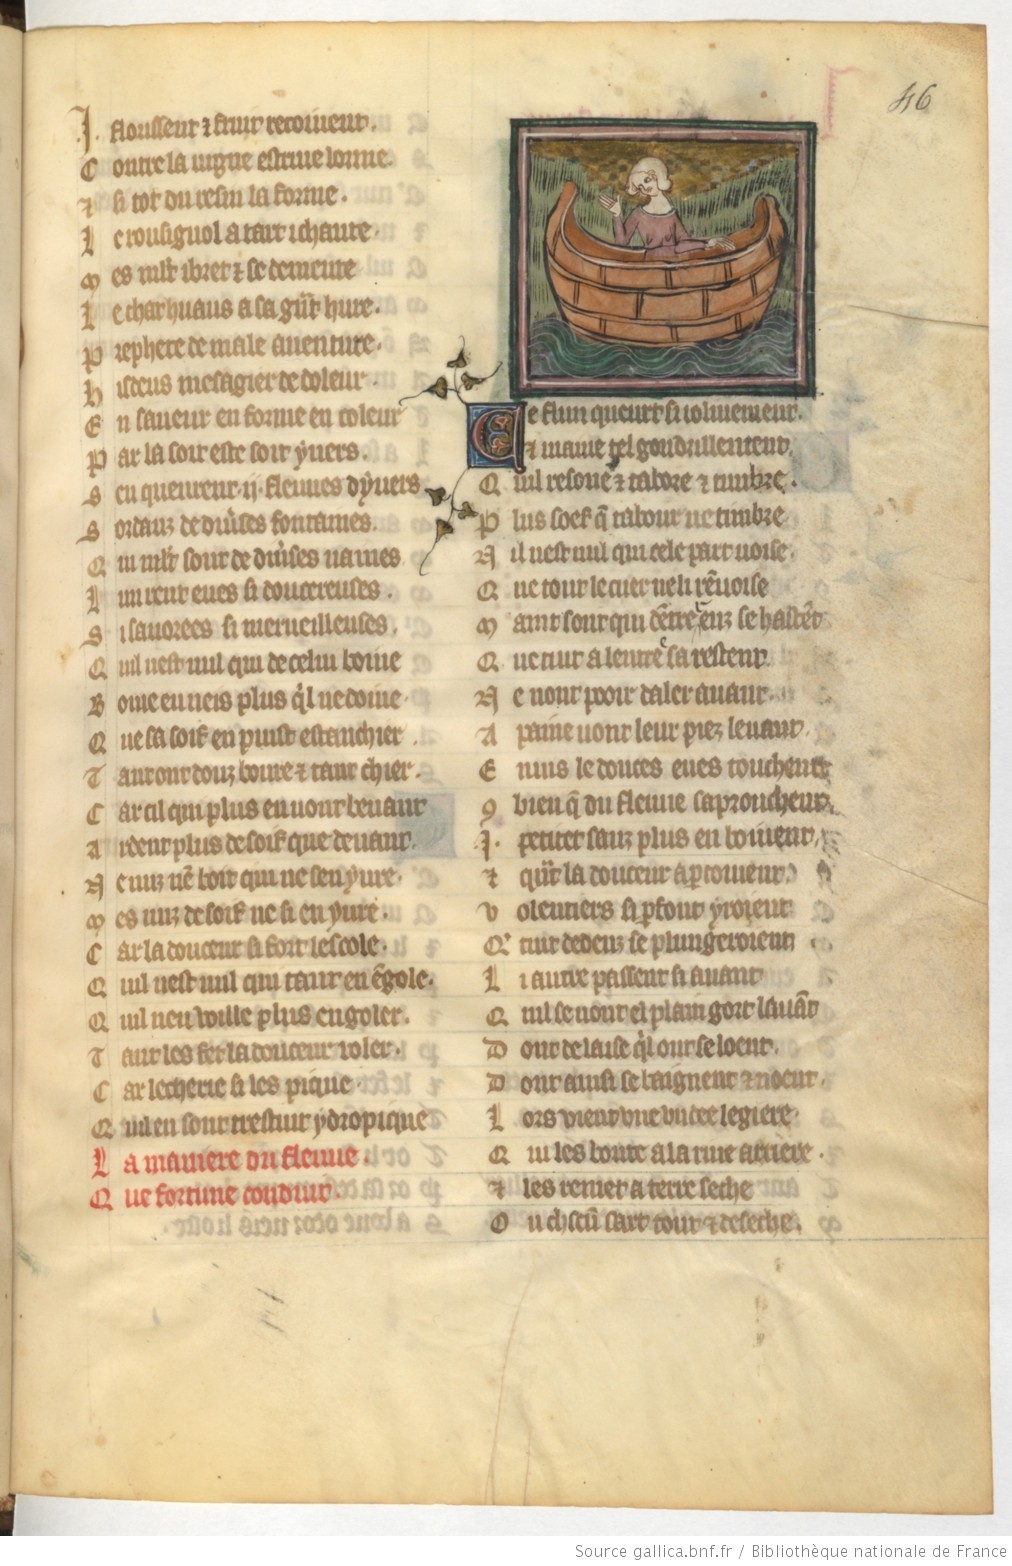 46
I flourissent et fruit recoiuent.
C ontre la uigne estriue lorme
⁊ li tot du resin la forme.
L e rousignol a tart i chante.
M es mlt i bret ⁊ se demente
L e chat huaus a sa gñt hure.
P rephete de male auenture.
H ideus mesagier de doleur.
E n saueur en forme en coleur
P ar la soit este soit yuers.
S en queurent .ij. fleuues dyuers
S ordanz de diũses fontaines.
Q ui mlt sont de diũses uaines
L un rent eues si doucereuses.
S i sauorees si merueilleuses.
Q uil nest nul qui de celui boiue
B oiue en neis plus ql ne doiue
Q ue sa soif en puist estanchier
T ant ont douz boire ⁊ tant chier.
C ar cil qui plus en uont beuant
A rdent plus de soif que deuant.
N e nuz nẽ boit qui ne sen yure.
M es nuz de soif ne si en yure.
C ar la douceur si fort les cole.
Q uil nest nul qui tant en ẽgole.
Q uil neu voille plus engoler.
T ant les fet la douceur voler.
C ar lecherie si les pique
Q uil en sont trestuit ydropique
L a maniere du fleuue.
Q ue fortune conduit.
C e flun queurt si ioliuement.
⁊ maine tel gondrillement
Q uil resoñe ⁊ tabore ⁊ timbre.
P lus soef q̃ tabour ne timbre
N il nest nul qui cele part uoise.
Q ue tout le cuer ne li rẽuoise
M aint sont qui dẽtrer enz se hastẽt
Q ue tuit a lentree sarestent.
N e nont pooir daler auant.
A paine uont leur piez leuant.
E nuis le douces eues touchent
9 bien q̃ du fleuue saprouchent.
I. petitet sanz plus en boiuent.
⁊ qñt la douceur apercoiuent.
V olentiers si pfont yroient
Q tuit dedenz se plungeroient
L i autre passent si auant
Q uil se uont el plain gort lauãt
D ont de laise ql ont se loent.
D ont ainsi se baignent ⁊ noent.
L ors vient vne undee legiere
Q ui les boute a la riue arriere.
⁊ les remet a terre seche
O u chscũ sart tout ⁊ deseche.
Source gallica.bnf.fr / Bibliothèque nationale de France